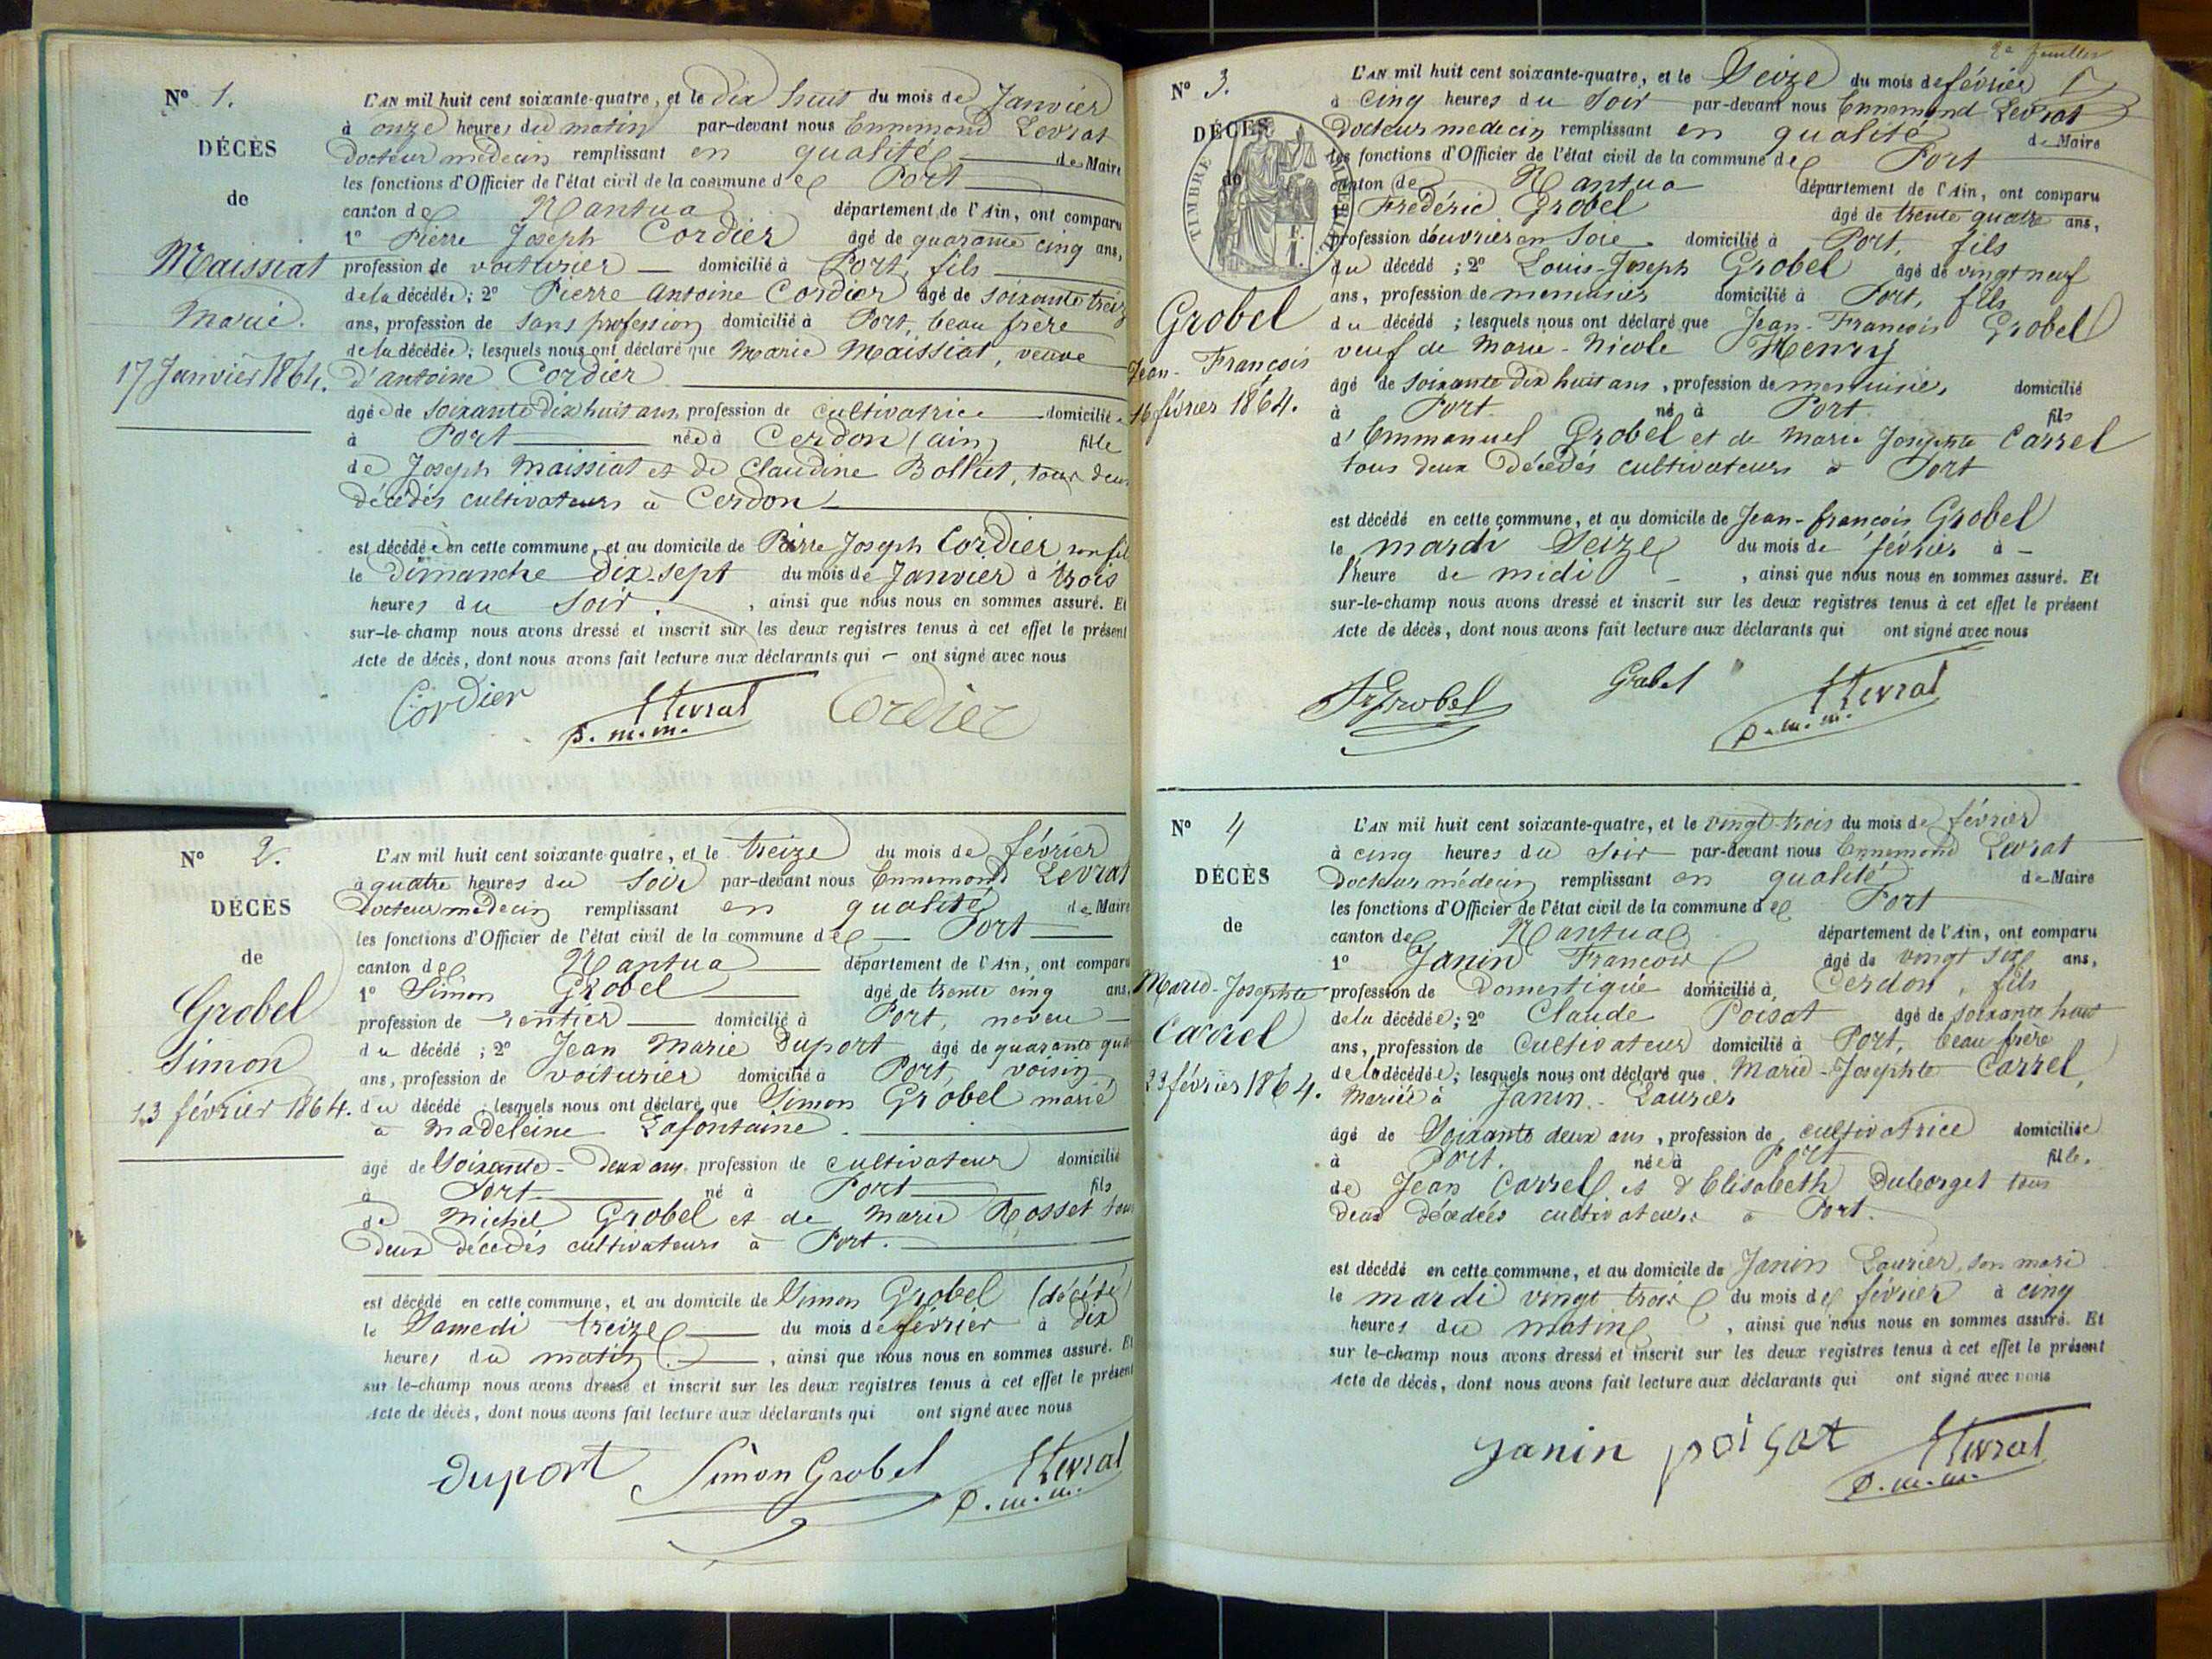 N° 1.
DÉCÈS
de
Maissiat
Marie.
17 Janvier 1864.
L'AN mil huit cent soixante-quatre, et le dix huit du mois de Janvier
à onze heures du matin par-devant nous Ennemond Levrat
Docteur médecin remplissant en qualité de Maire
les fonctions d'Officier de l'état civil de la commune de Port
canton de Nantua département de l'Ain, ont comparu
1° Pierre Joseph Cordier âgé de quarante cinq ans,
profession de voiturier domicilié à Port, fils
de la décédée; 2° Pierre Antoine Cordier âgé de soixante treize
ans, profession de sans profession domicilié à Port, beau frère
de la décédée; lesquels nous ont déclaré que Marie Maissiat, veuve
d'antoine Cordier
âgé de soixante dix huit ans profession de cultivatrice domicilié
à Port née à Cerdon (ain) fille
de Joseph Maissiat et de Claudine Bolliet, tous deux
décédés cultivateurs à Cerdon
est décédée en cette commune, et au domicile de Pierre Joseph Cordier son fils
le Dimanche dix-sept du mois de Janvier à trois
heures du soir, ainsi que nous nous en sommes assuré. Et
sur-le-champ nous avons dressé et inscrit sur les deux registres tenus à cet effet le présent
Acte de décès, dont nous avons fait lecture aux déclarants qui – ont signé avec nous
Cordier Levrat Cordier
D. m. m.
N° 2.
DÉCÈS
de
Grobel
Simon
13 février 1864.
L'AN mil huit cent soixante-quatre, et le treize du mois de février
à quatre heures du Soir par-devant nous Ennemond Levrat
Docteur médecin remplissant en qualité de Maire
les fonctions d'Officier de l'état civil de la commune de Port
canton de Nantua département de l'Ain, ont comparu
1° Simon Grobel âgé de trente cinq ans,
profession de rentier domicilié à Port, neveu
du décédé; 2° Jean Marie Duport âgé de quarante qua
ans, profession de voiturier domicilié à Port, voisin
du décédé; lesquels nous ont déclaré que Simon Grobel marié
à Madeleine Lafontaine
âgé de Soixante-deux ans profession de cultivateur domicilié
à Port né à Port fils
de Michel Grobel et de Marie Rosset tous
deux décédés cultivateurs à Port.
est décédé en cette commune, et au domicile de Simon Grobel (décédé)
le Samedi treize du mois de février à dix
heures du matin, ainsi que nous nous en sommes assuré. Et
sur le-champ nous avons dressé et inscrit sur les deux registres tenus à cet effet le présent
Acte de décès, dont nous avons fait lecture aux déclarants qui ont signé avec nous
Duport Simon Grobel Levrat
D. m. m.
2e feuillet
N° 3.
TIMBRE
DÉCÈS
de
Grobel
Jean-François
16 février 1864.
L'AN mil huit cent soixante-quatre, et le Seize du mois de février
à cinq heures du Soir par-devant nous Ennemond Levrat
Docteur medecin remplissant en qualité de Maire
les fonctions d'Officier de l'état civil de la commune de Port
canton de Nantua département de l'Ain, ont comparu
1° Frédéric Grobel âgé de trente quatre ans,
profession d'ouvrier en Soie domicilié à Port, fils
du décédé; 2° Louis-Joseph Grobel âgé de vingt neuf
ans, profession de menuisier domicilié à Port, fils
du décédé; lesquels nous ont déclaré que Jean-François Grobel
veuf de Marie-Nicole Henry
âgé de soixante dix huit ans, profession de menuisier domicilié
à Port né à Port fils
d'Emmanuel Grobel et de Marie Josephte Carrel
tous deux décédés cultivateurs à Port
est décédé en cette commune, et au domicile de Jean-françois Grobel
le mardi Seize du mois de février à –
l'heure de midi, ainsi que nous nous en sommes assuré. Et
sur-le-champ nous avons dressé et inscrit sur les deux registres tenus à cet effet le présent
Acte de décès, dont nous avons fait lecture aux déclarants qui ont signé avec nous
Fr Grobel Grobel Levrat
D. m. m.
N° 4
DÉCÈS
de
Marie-Josephte
Carrel
23 février 1864.
L'AN mil huit cent soixante-quatre, et le vingt-trois du mois de février
à cinq heures du Soir par-devant nous Ennemond Levrat
Docteur médecin remplissant en qualité de Maire
les fonctions d'Officier de l'état civil de la commune de Port
canton de Nantua département de l'Ain, ont comparu
1° Janin François âgé de vingt six ans,
profession de Domestique domicilié à Cerdon, fils
de la décédée; 2° Claude Poisat âgé de soixante huit
ans, profession de Cultivateur domicilié à Port, beau frère
de la décédée; lesquels nous ont déclaré que Marie-Josephte Carrel,
Mariée à Janin-Laurier
âgé de Soixante deux ans, profession de cultivatrice domiciliée
à Port née à Port fille.
de Jean Carrel et d'Elisabeth Duborget tous
deux décédés cultivateurs à Port.
est décédé en cette commune, et au domicile de Janin Laurier, son mari
le mardi vingt trois du mois de février à cinq
heures du matin, ainsi que nous nous en sommes assuré. Et
sur le-champ nous avons dressé et inscrit sur les deux registres tenus à cet effet le présent
Acte de décès, dont nous avons fait lecture aux déclarants qui ont signé avec nous
Janin poisat Levrat
D. m. m.